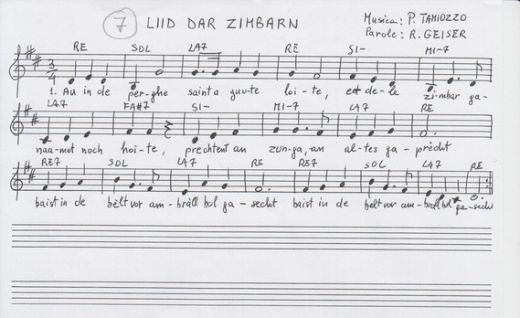 7 LIID DAR ZIMBARN
Musica: P. TAMIOZZO
Parole: R. GEISER
RE SOL LA7 RE SI- MI-7
3/4
1. Au in de perghe saint a guu-te loi-te, est de-le zimbar ga-
LA7 FA#7 SI- MI-7 LA7 RE
naa-mot noch hoi-te, prechtent an zunga, an al-tes ga-prècht
RE7 SOL LA7 RE RE7 SOL LA7 RE
baist in de bèlt vor am-bràll bol ga-secht baist in de bèlt vor am-bràll bol ga-secht